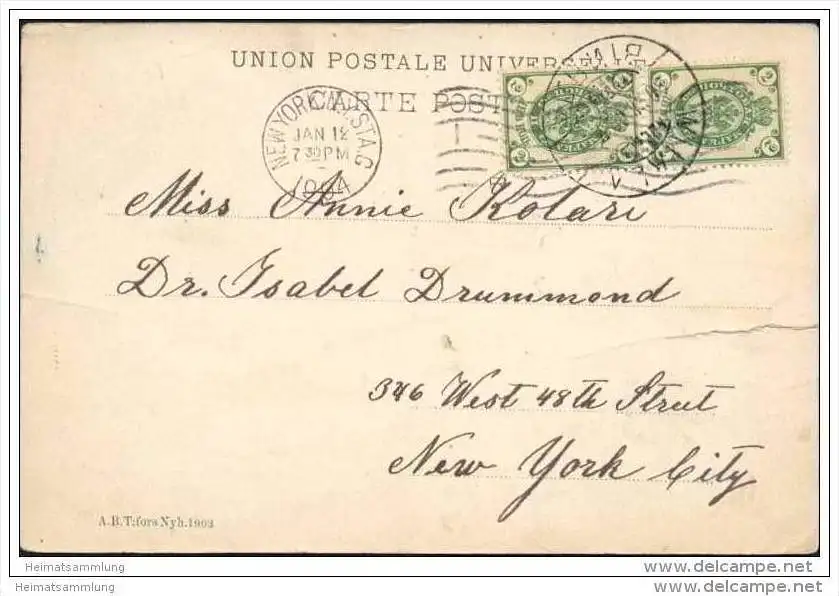 UNION POSTALE UNIVERSELLE
CARTE POST
NEW YORK, N.Y. STA. G
JAN 12
7 30 PM
1904
Miss Annie Kotari
Dr. Isabel Drummond
346 West 48th Street
New York City
A.B.T:fors Nyh.1903
Heimatsammlung
www.delcampe.net
Heimatsammlung
www.delcampe.net